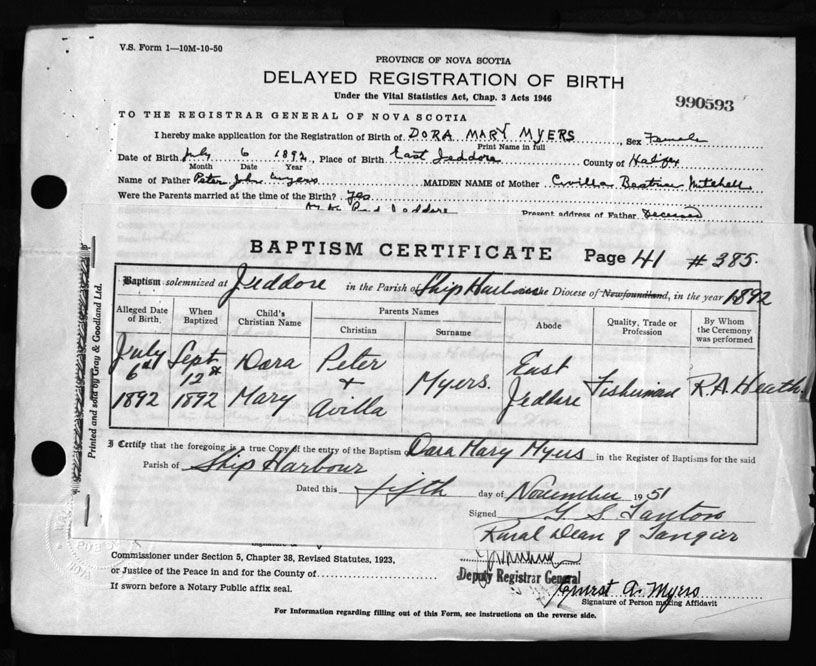 V.S. Form 1—10M-10-50
PROVINCE OF NOVA SCOTIA
DELAYED REGISTRATION OF BIRTH
Under the Vital Statistics Act, Chap. 3 Acts 1946
990593
TO THE REGISTRAR GENERAL OF NOVA SCOTIA
I hereby make application for the Registration of Birth of DORA MARY MYERS, Sex Female
Print Name in full
Date of Birth July 6 1892, Place of Birth East Jeddore County of Halifax
Month Date Year
Name of Father Peter John Myers MAIDEN NAME of Mother Civilla Beatrice Mitchell
Were the Parents married at the time of the Birth? Yes
Jeddore Present address of Father Deceased
BAPTISM CERTIFICATE Page 41 # 385.
Baptism solemnized at Jeddore in the Parish of Ship Harbour the Diocese of Newfoundland, in the year 1892
Alleged Date of Birth. When Baptized Child's Christian Name Parents Names Christian Surname Abode Quality, Trade or Profession By Whom the Ceremony was performed
July 6th 1892 Sept. 12th 1892 Dara Mary Peter + Avilla Myers. East Jeddore Fisherman R.A. Heath
Printed and sold by Gray & Goodland Ltd.
I Certify that the foregoing is a true Copy of the entry of the Baptism Dara Mary Myers in the Register of Baptisms for the said
Parish of Ship Harbour
Dated this fifth day of November 1951
Signed G. S. Tanton
Rural Dean of Tangier
Commissioner under Section 5, Chapter 38, Revised Statutes, 1923,
or Justice of the Peace in and for the County of
Deputy Registrar General
If sworn before a Notary Public affix seal.
A. Myers
Signature of Person making Affidavit
For Information regarding filling out of this Form, see instructions on the reverse side.